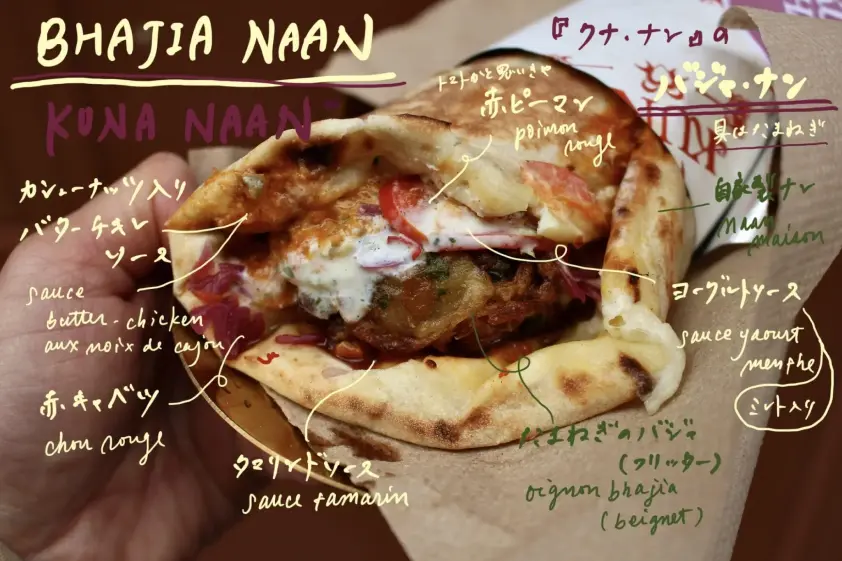 BHAJIA NAAN
KUNA NAAN
『クナ・ナン』の
バジャ・ナン
具はたまねぎ
トマトかと思いきや
赤ピーマン
poivron
rouge
自家製ナン
naan
maison
カシューナッツ入り
バターチキン
ソース
sauce
butter-chicken
aux noix de cajou
赤キャベツ
chou rouge
タマリンドソース
sauce tamarin
たまねぎのバジャ
(フリッター)
oignon bhajia
(beignet)
ヨーグルトソース
sauce yaourt
menthe
ミント入り